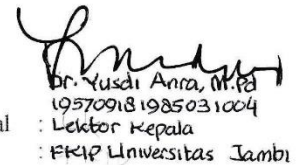 Dr. Yusdi Anra, M.Pd
195709181985031004
al : Lektor Kepala
: FKIP Universitas Jambi